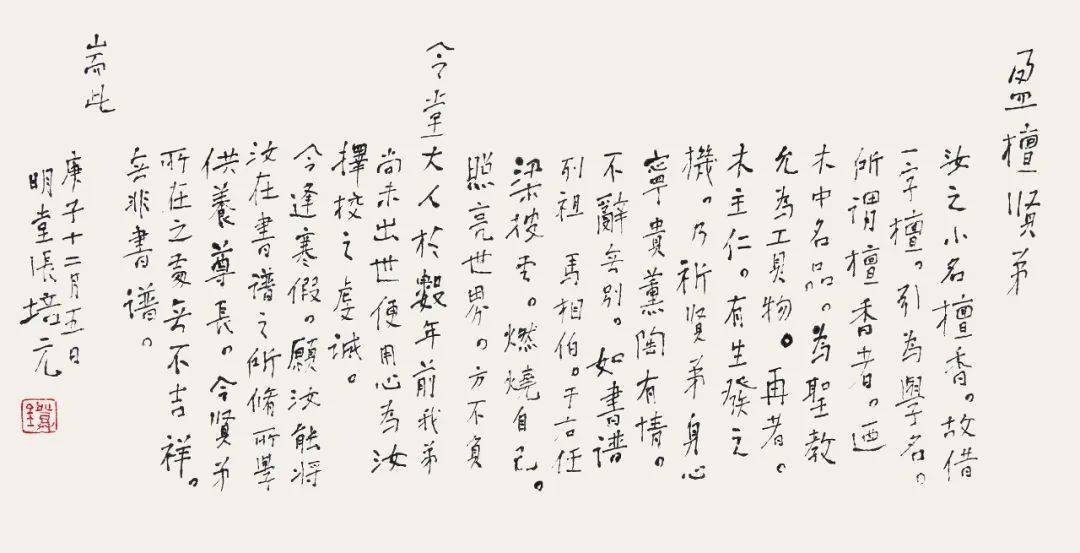 盈檀贤弟
汝之小名檀香。故借
一字檀。引為學名。
所謂檀香者。迺
木中名品。為聖教
允為工具物。再者。
木主仁。有生發之
機。乃祈贤弟身心
寧貴薰陶有情。
不辭無别。如書谱
列祖馬相伯。于右任
梁披雲。燃燒自己。
照亮世界。方不負
令堂大人於數年前我弟
尚未出世便用心為汝
擇校之虔诚。
今逢寒假。願汝能将
汝在書谱之所脩所學
供養尊長。令贤弟
所在之處無不吉祥。
無非書谱。
耑此
庚子十二月五日
明堂张培元